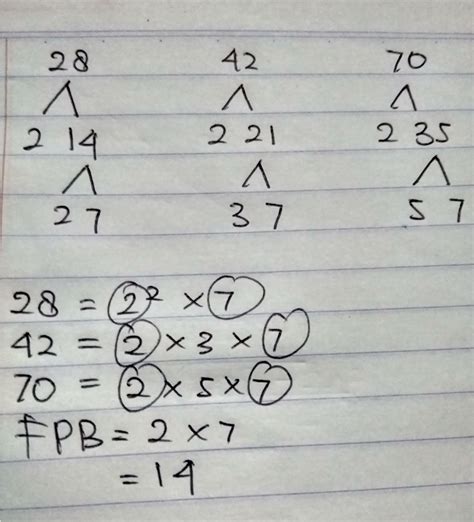 28 42 70
2 14 2 21 2 35
2 7 3 7 5 7
28 = 2² × 7
42 = 2 × 3 × 7
70 = 2 × 5 × 7
FPB = 2 × 7
= 14